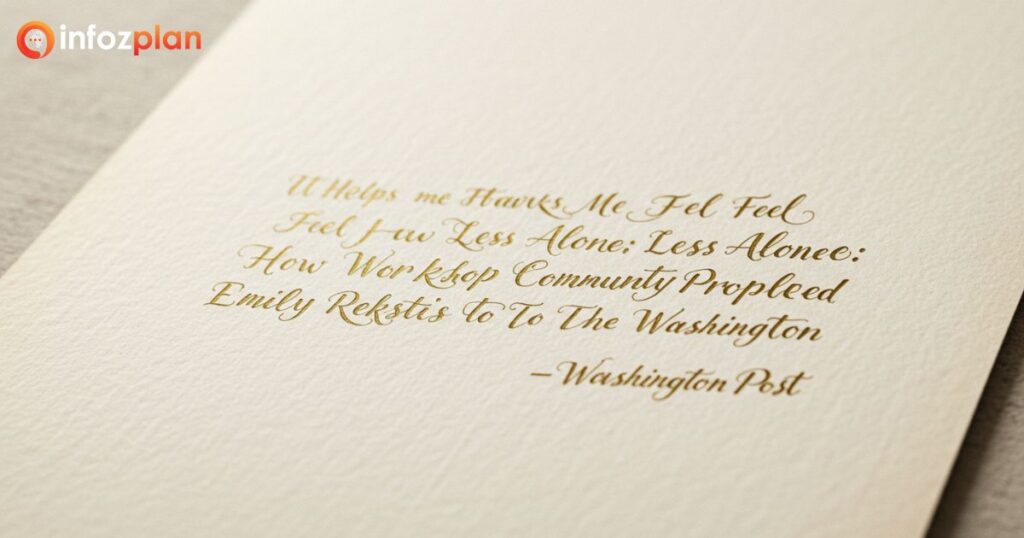 infozplan
It Helps me Thavks Me Fel Feel
Fiel Less Alone: Less Alonee:
How Workshop Communty Propleed
Emily Rekstis to To The Washington
– Washington Post